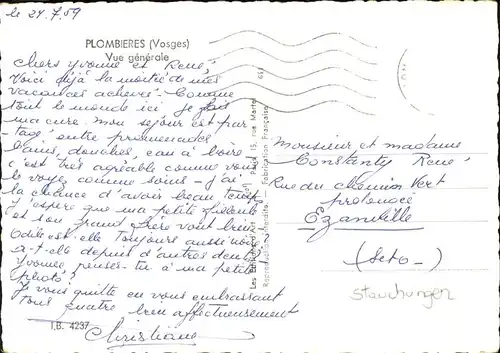 le 24.7.59
PLOMBIERES (Vosges)
Vue générale
Chers Yvonne et René,
Voici déjà la moitié de mes
vacances achevée. Comme
tout le monde ici je fais
ma cure. Mon séjour est par-
tagé entre promenades
bains, douches, eau à boire
c'est très agréable comme vous
le voyez, comme soins. J'ai
la chance d'avoir beau temps
J'espère que ma petite
et son grand frère vont bien
Odile est-elle toujours aussi
a-t-elle depuis d'autres dents?
Yvonne, penses-tu à ma petite
photo?
Je vous quitte en vous embrassant
tous quatre bien affectueusement
Christiane
I.B. 4237
Monsieur et madame
Constanty René
Rue du chemin Vert
prolongée
Ezanville
(Set O-)
Stauchungen